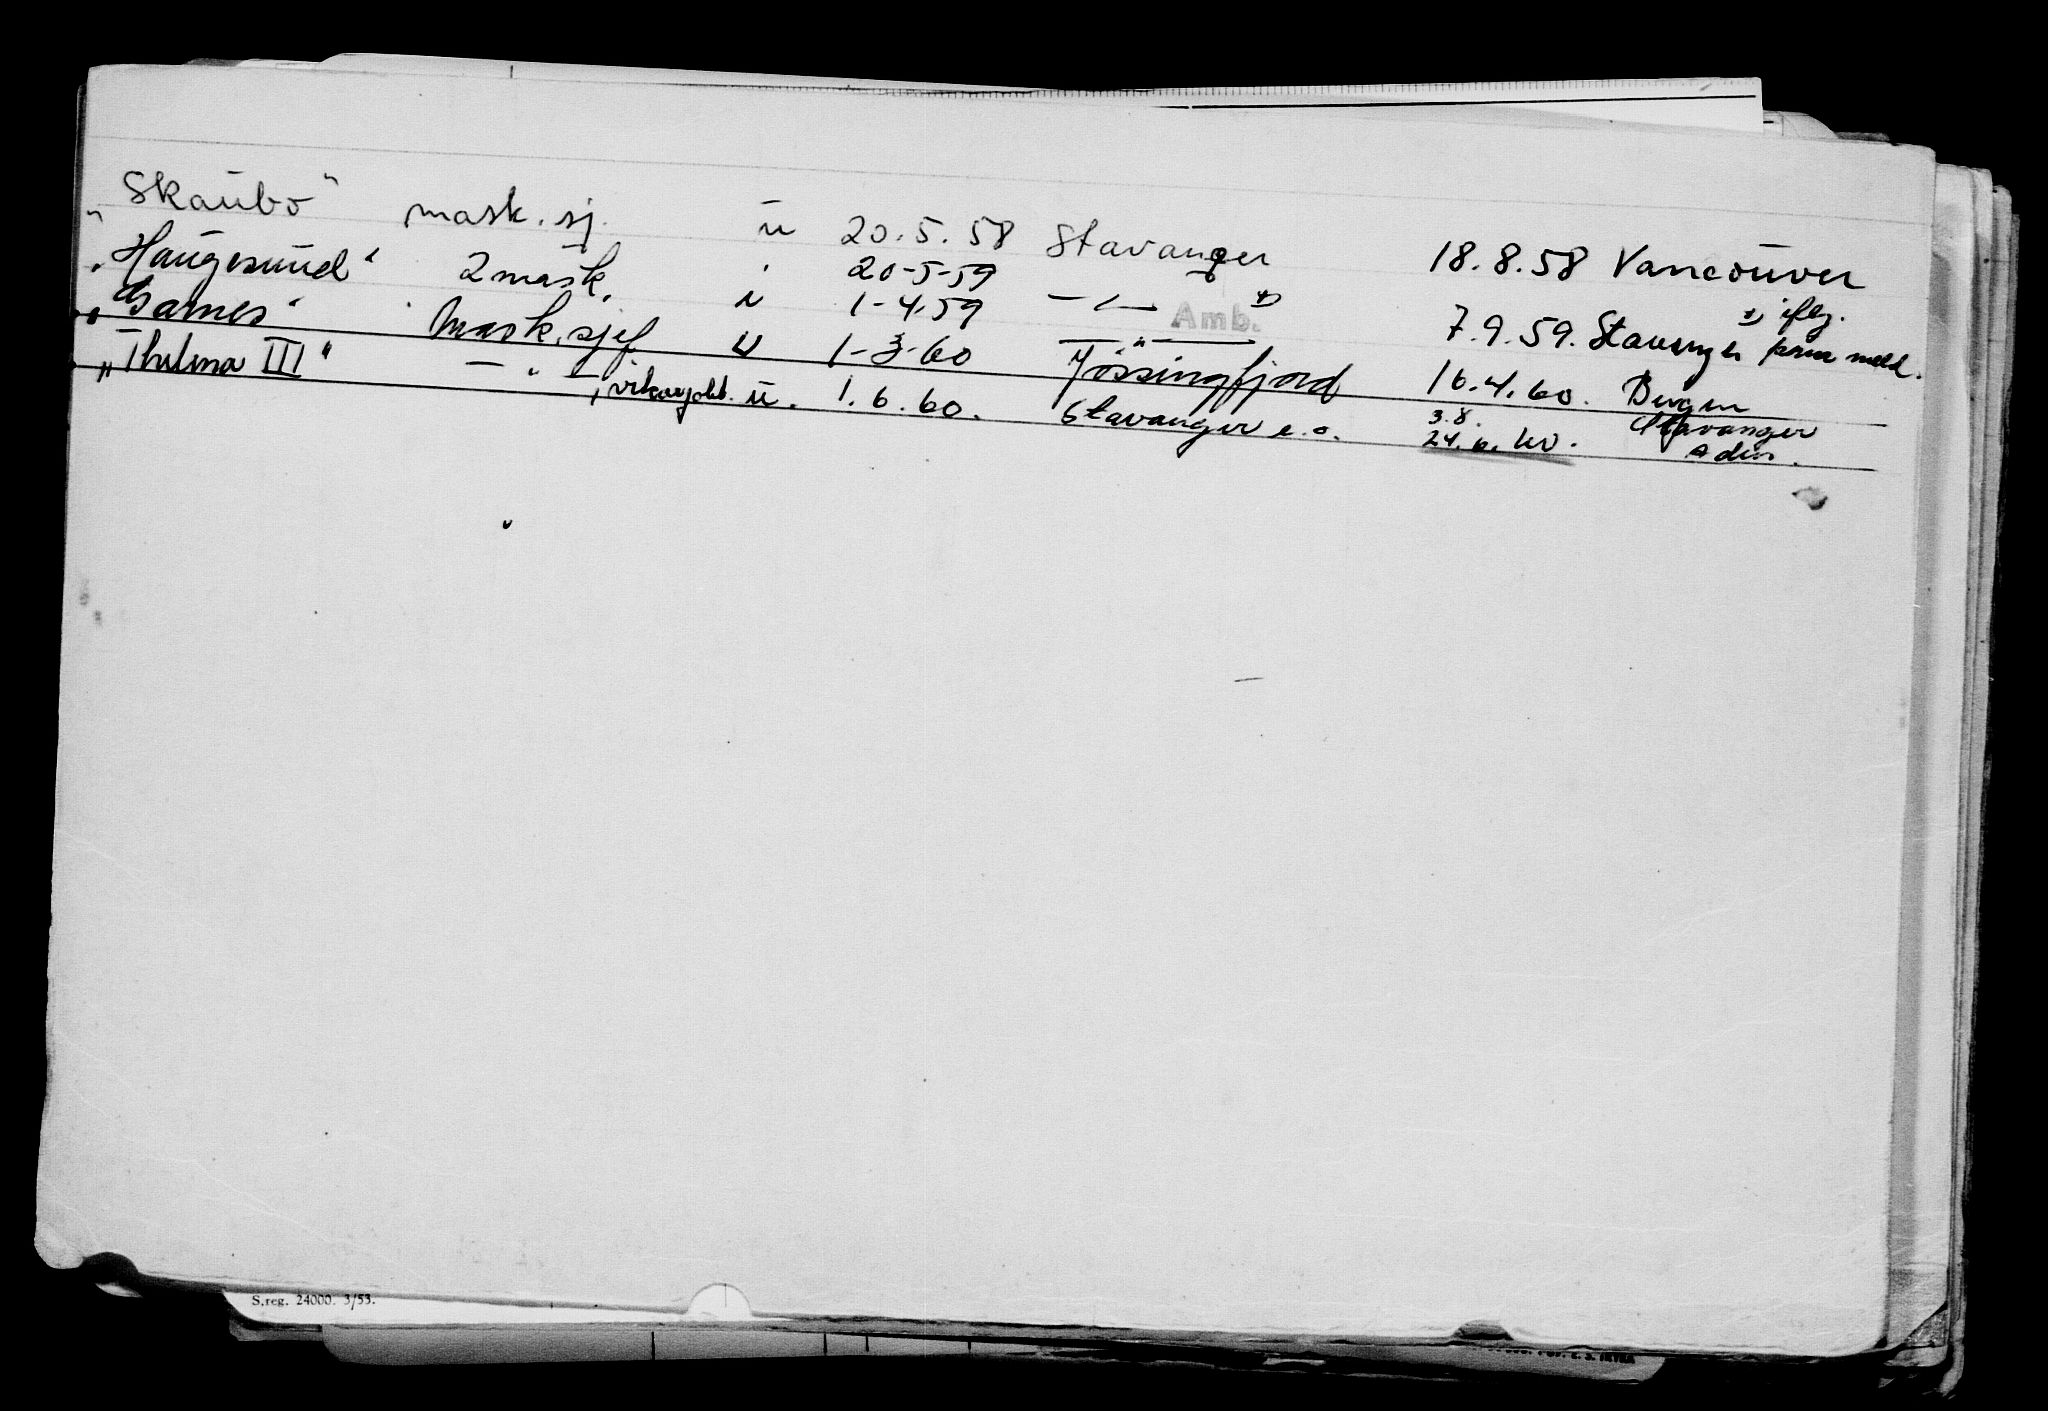 "Skaubo" mask. sj. u 20.5.58 Stavanger 18.8.58 Vancouver
"Haugesund" 2 mask. i 20-5-59 — " — x) 7.9.59. Stavanger x) iflg. pers. meld.
"Garnes" Mask.sjef u 1-4-59
Amb.
1-3-60 Jøssingfjord 16.4.60. Bergen
"Thelma III" — " —, vikarjobb. u. 1.6.60. Stavanger e.o. 3.8. Stavanger
24.6.60. Aden.
S.reg. 24000. 3/53.